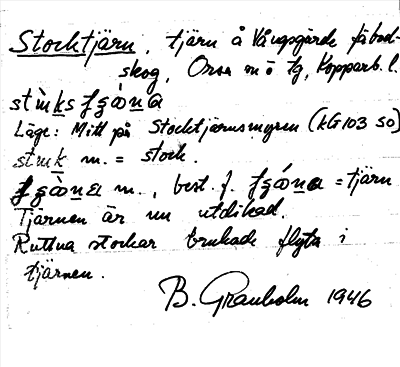 Stocktjärn, tjärn å Vångsgärde fäbod-
skog, Orsa m o tg, Kopparb. l.
Läge: Mitt på Stocktjärnsmyren (kG103 SO)
m. = stock.
m., best. f. = tjärn
Tjärnen är nu utdikad.
Ruttna stockar brukade flyta i
tjärnen.
B. Granholm 1946